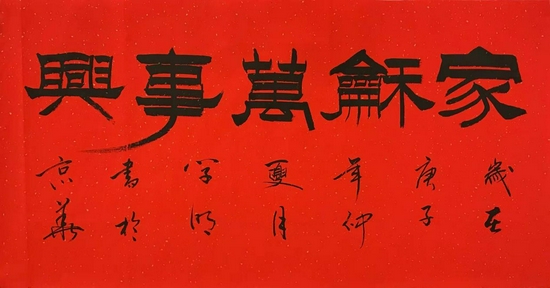 家龢萬事興
歲在
庚子
年仲
夏月
学明
書於
京華